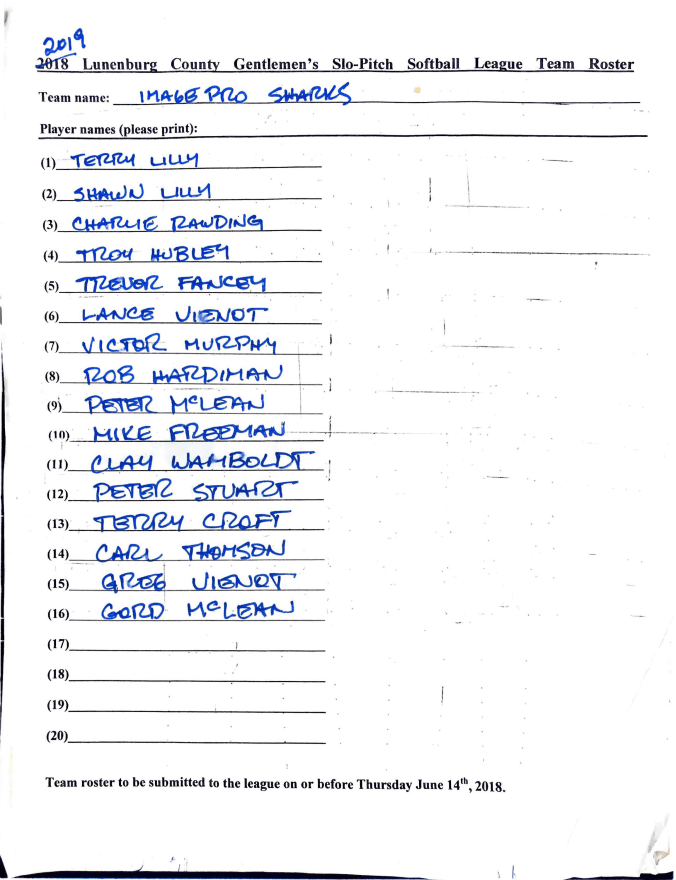 2019
2018 Lunenburg County Gentlemen's Slo-Pitch Softball League Team Roster
Team name: IMAGE PRO SHARKS
Player names (please print):
(1) TERRY LILLY
(2) SHAWN LILLY
(3) CHARLIE RAWDING
(4) TROY HUBLEY
(5) TREVOR FANCEY
(6) LANCE VIENOT
(7) VICTOR MURPHY
(8) ROB HARDIMAN
(9) PETER McLEAN
(10) MIKE FREEMAN
(11) CLAY WAMBOLDT
(12) PETER STUART
(13) TERRY CROFT
(14) CARL THOMSON
(15) GREG VIENOT
(16) GORD McLEAN
(17)
(18)
(19)
(20)
Team roster to be submitted to the league on or before Thursday June 14th, 2018.